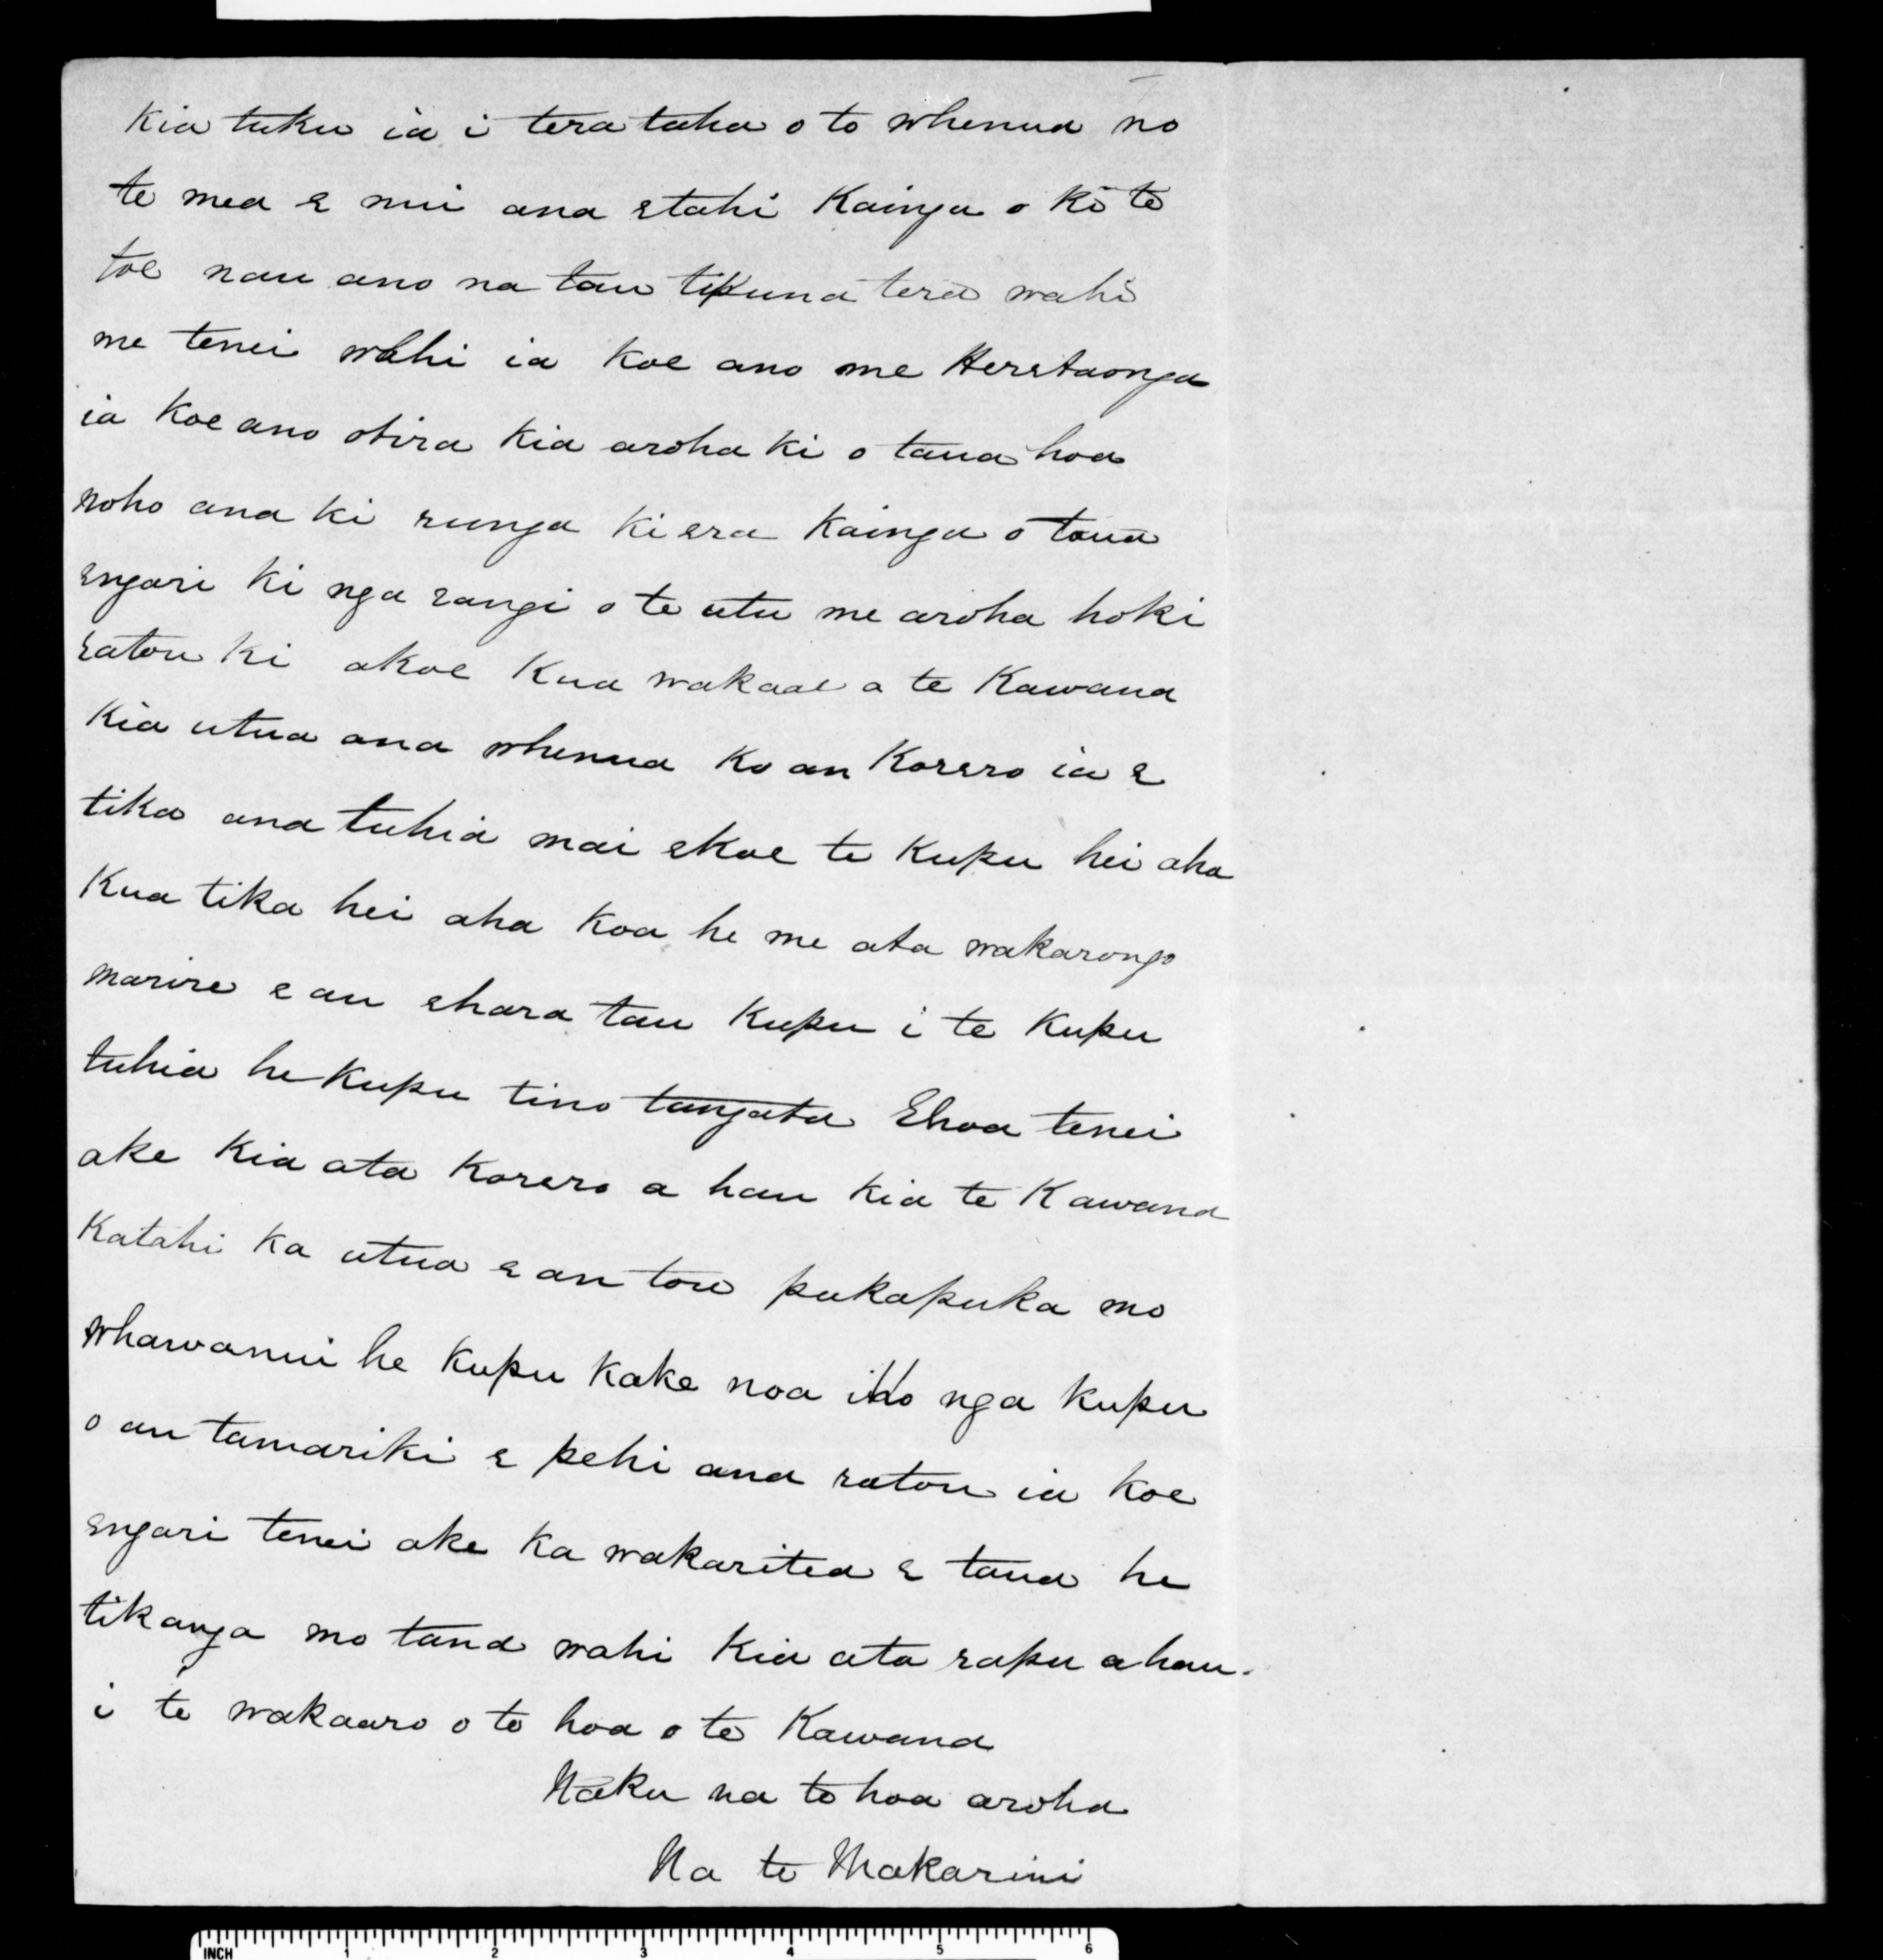 Kia tuku ia i tera taha o to whenua no
te mea e nui ana etahi Kainga o Ko te
toe nau ano na tau tipuna tera wahi
me tenei wahi ia Koe ano me Heretaonga
ia Koe ano otira Kia aroha Ki o taua hoa
noho ana Ki runga Ki era Kainga o taua
engari Ki nga rangi o te utu me aroha hoki
ratou Ki akoe Kua wakaae a te Kawana
Kia utua ana whenua Ko au Korero ia e
tika ana tuhia mai ekoe te Kupu hei aha
Kua tika hei aha Koa he me ata wakarongo
marire e au ehara tau Kupu i te Kupu
tuhia he Kupu tino tangata Ehoa tenei
ake Kia ata Korero a hau Kia te Kawana
Katahi Ka utua e au tou pukapuka mo
Wharawanui he Kupu Kake noa iho nga Kupu
o au tamariki e pehi ana ratou ia Koe
engari tenei ake Ka wakaritea e taua he
tikanga mo taua wahi Kia ata rapu ahau.
i te wakaaro o to hoa o te Kawana
Naku na to hoa aroha
Na te Makarini
INCH 1 2 3 4 5 6